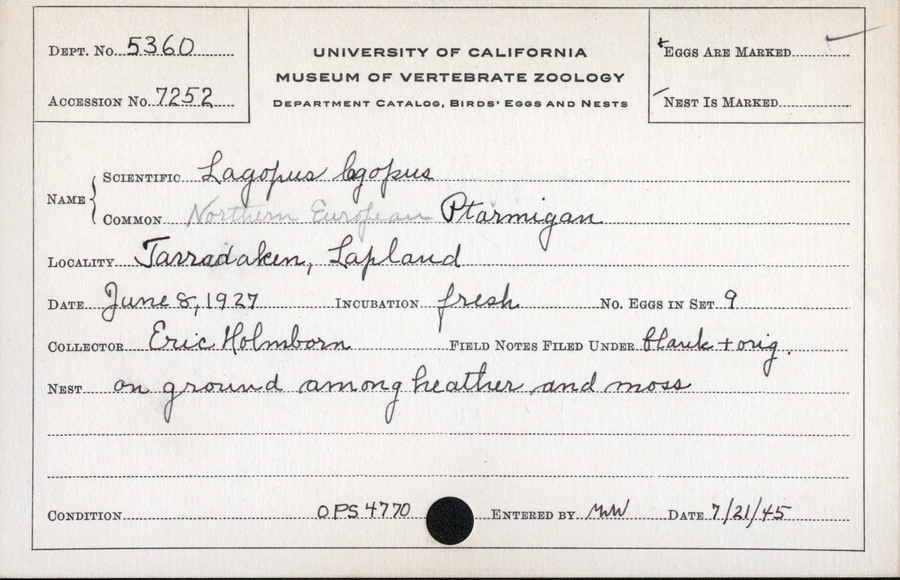 DEPT. NO. 5360
ACCESSION NO. 7252
UNIVERSITY OF CALIFORNIA
MUSEUM OF VERTEBRATE ZOOLOGY
DEPARTMENT CATALOG, BIRDS' EGGS AND NESTS
EGGS ARE MARKED
NEST IS MARKED
NAME
SCIENTIFIC Lagopus lagopus
COMMON Northern European Ptarmigan
LOCALITY Tarradaken, Lapland
DATE June 8, 1927 INCUBATION fresh NO. EGGS IN SET 9
COLLECTOR Eric Holmborn FIELD NOTES FILED UNDER blank + orig.
NEST on ground among heather and moss
CONDITION OPS 4770 ENTERED BY DATE 7/21/45